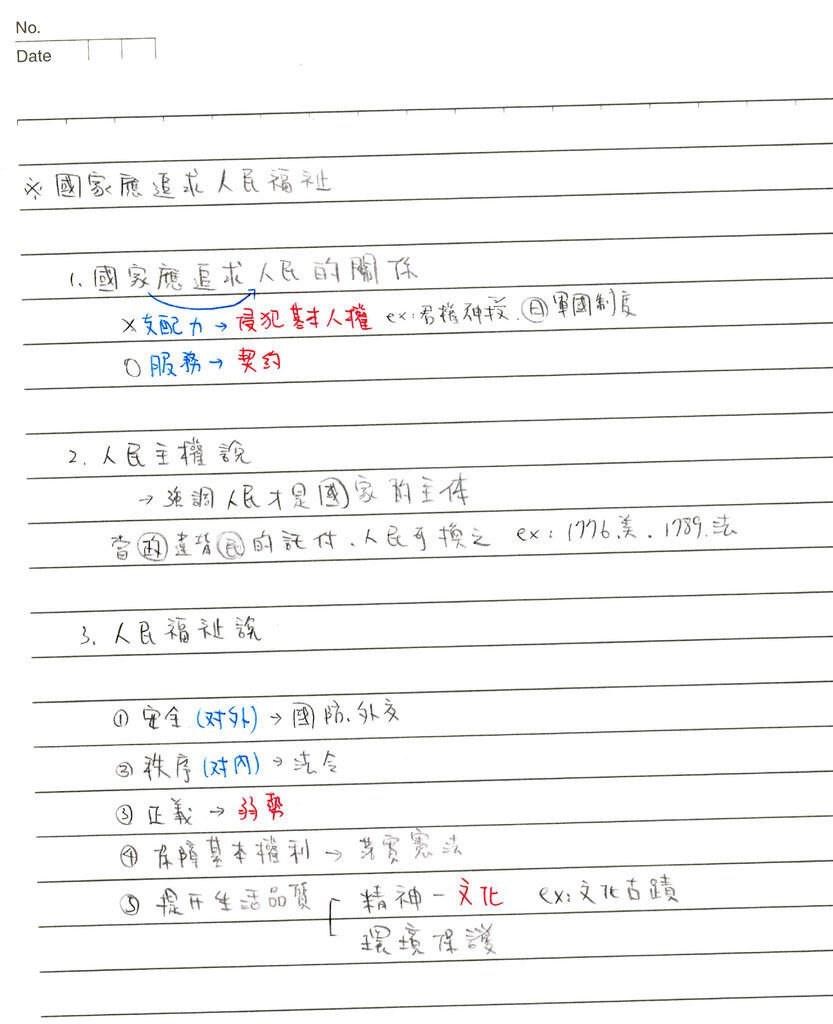 No.
Date
※國家應追求人民福祉
1. 國家應追求人民的關係
×支配力→侵犯基本人權 ex:君權神授、日軍國制度
○服務→契約
2. 人民主權說
→強調人民才是國家的主体
當政違背民的託付、人民可換之 ex: 1776.美、1789.法
3. 人民福祉說
① 安全(对外)→國防、外交
② 秩序(对內)→法令
③ 正義→弱勢
④ 保障基本權利→落實憲法
⑤ 提升生活品質 精神-文化 ex:文化古蹟
環境保護